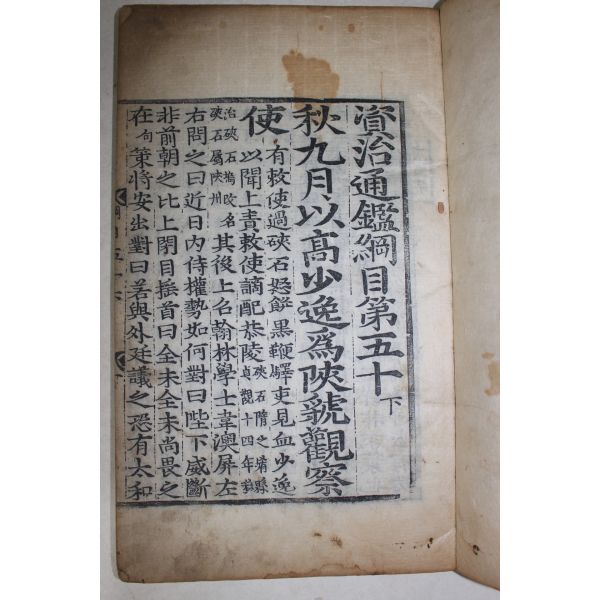 資治通鑑綱目第五十下
秋九月以高少逸爲陝虢觀察
使
有敕使過硤石怒餅黑鞭驛吏見血少逸
以聞上責敕使謫配恭陵
硤石隋之崤縣
貞觀十四年移
治硤石塢改名
硤石屬陝州
其後上召翰林學士韋澳屏左
右問之曰近日内侍權勢如何對曰陛下威斷
非前朝之比上閉目搖首曰全未全未尚畏之
在句策將安出對曰若與外廷議之恐有太和